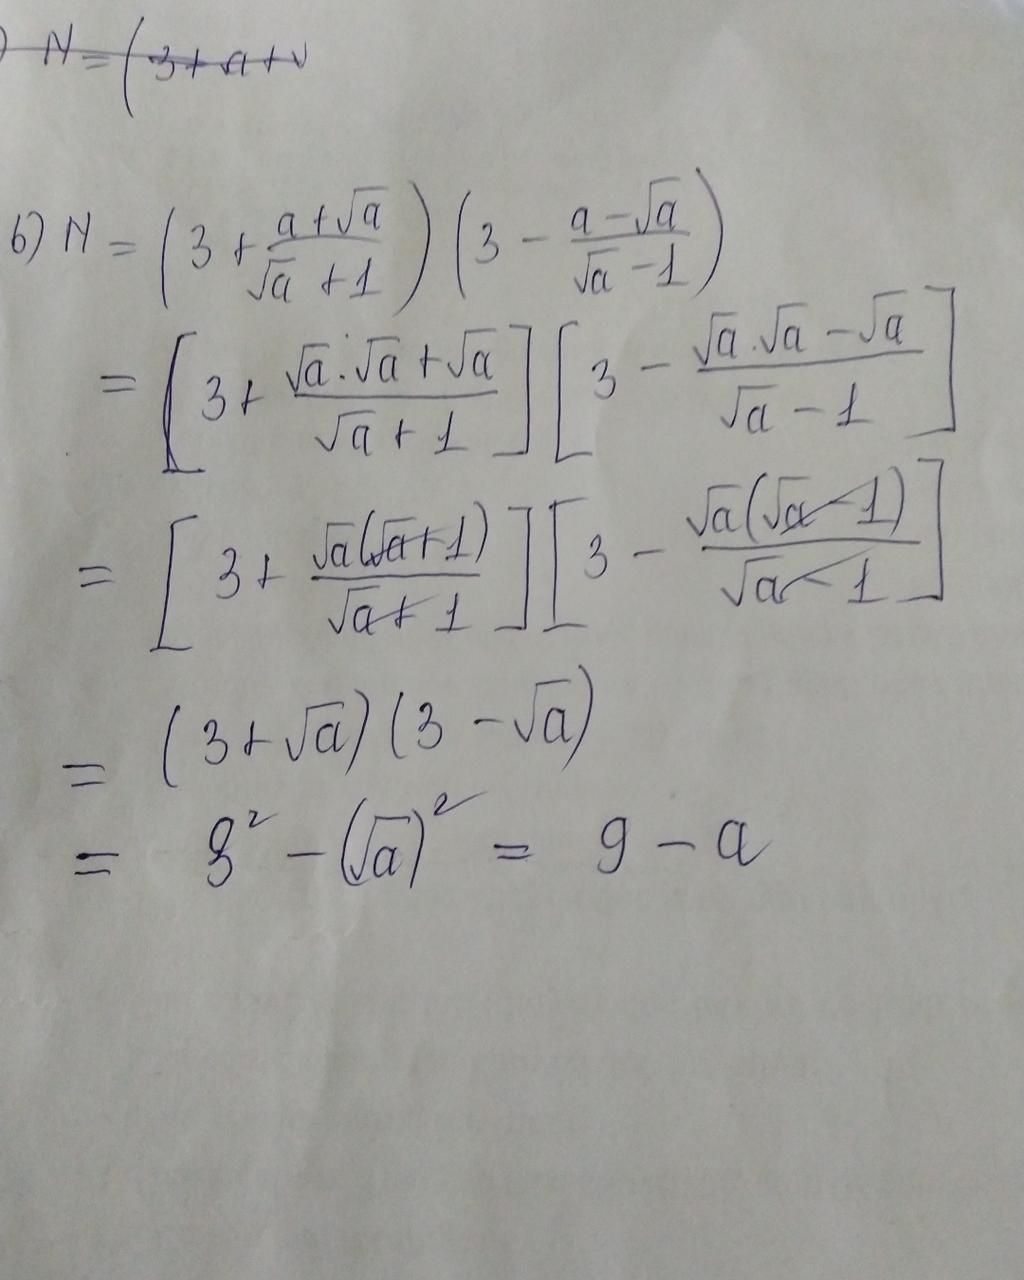 ) N = ( 3 + a + √
b) N = ( 3 + (a + √a)/(√a + 1) ) ( 3 - (a - √a)/(√a - 1) )
= [ 3 + (√a . √a + √a)/(√a + 1) ] [ 3 - (√a . √a - √a)/(√a - 1) ]
= [ 3 + √a(√a + 1)/(√a + 1) ] [ 3 - √a(√a - 1)/(√a - 1) ]
= ( 3 + √a ) ( 3 - √a )
= 3² - (√a)² = 9 - a